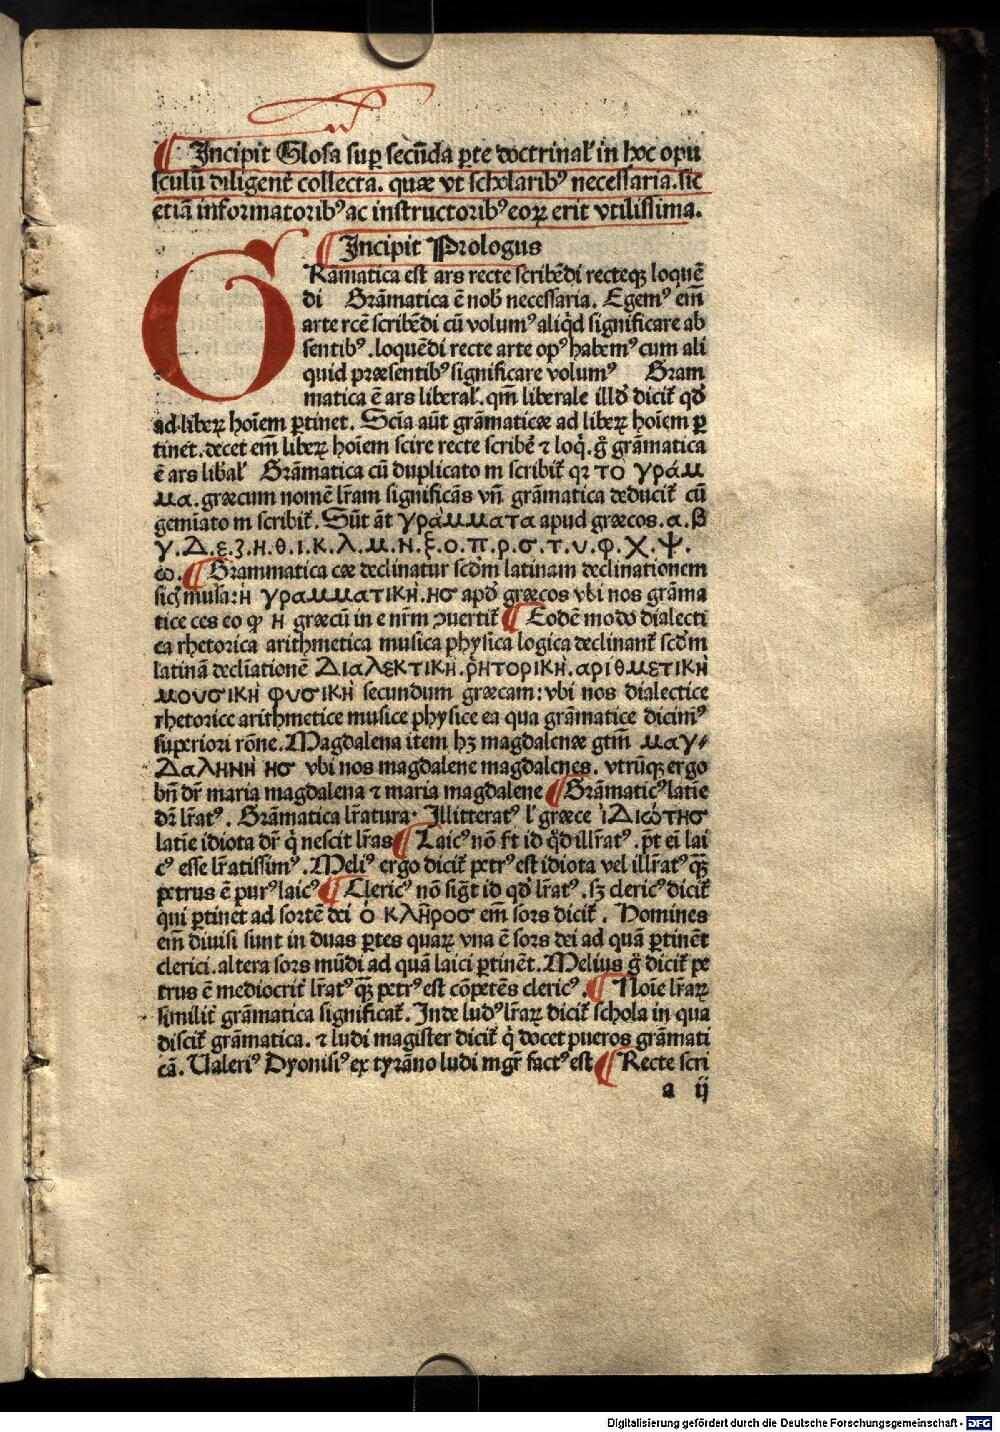 ¶ Incipit Glosa sup̱ secūda ꝑte doctrinaꝉ in hoc opu
sculū diligenṫ collecta. quæ vt scholaribꝰ necessaria. sic
etiā informatoribꝰ ac instructoribꝰ eoꝝ erit vtilissima.
¶ Incipit Prologus
GRāmatica est ars recte scribēdi recteqꝫ loquē
di Grāmatica ē nob̄ necessaria. Egemꝰ em̄
arte rcē scribēdi cū volumꝰ aliq̇d significare ab
sentibꝰ. loquēdi recte arte opꝰ habemꝰ cum ali
quid præsentibꝰ significare volumꝰ Gram
matica ē ars liberaꝉ. qm̄ liberale illđ dicit̄ qđ
ad liberꝝ hoīem ꝑtinet. Scīa aūt grāmaticæ ad liberꝝ hoīem ꝑ
tinet. decet em̄ liberꝝ hoīem scire recte scribē ⁊ loq̇. g̊ grāmatica
ē ars libaꝉ Grāmatica cū duplicato m scribit̄ qꝛ το γράμ
μα. græcum nomē lr̄am significās vn̄ grāmatica deducit̄ cū
gemiato m scribit̄. Sūt āt γράμματα apud græcos. α. β
γ. Δ. ε. ʒ. н. θ. ι. κ. λ. μ. ν. ξ. ο. π. ρ. σ. τ. υ. φ. χ. ψ.
ω. ¶ Grammatica cæ declinatur scđm latinam declinationem
sic̄ musa: ἡ γραμματικὴ. ησ apđ græcos vbi nos grāma
tice ces eo ꝙ η græcū in e nr̄m ↄuertit̄ ¶ Eodē modo dialecti
ca rhetorica arithmetica musica physica logica declinant̄ scđm
latinā decliationē Διαλεκτικὴ. ῥητορικὴ. αριθμετικὴ
μουσικὴ φυσικὴ secundum græcam: vbi nos dialectice
rhetorice arithmetice musice physice ea qua grāmatice dicimꝰ
superiori rōne. Magdalena item hꝫ magdalenæ gtm̄ μαγ⸗
Δαληνὴ ησ vbi nos magdalene magdalenes. vtrūqꝫ ergo
bn̄ dr̄ maria magdalena ⁊ maria magdalene ¶ Grāmaticꝰ latie
dr̄ lr̄atꝰ. Grāmatica lr̄atura. Illitteratꝰ ꝉ græce ἰΔιώτησ
latīe idiota dr̄ q̇ nescit lr̄as ¶ Laicꝰ nō st̄ id q̇d illr̄atꝰ. pt̄ ei̅ lai
cꝰ esse lr̄atissimꝰ. Meliꝰ ergo dicit̄ petrꝰ est idiota vel illr̄atꝰ qꝫ̄
petrus ē purꝰ laicꝰ ¶ Clericꝰ nō sigt̄ id qđ lr̄atꝰ. sꝫ clericꝰ dicit̄
qui ꝑtinet ad sortē dei ὁ κλῆροσ em̄ sors dicit̄. Homines
em̄ diuisi sunt in duas ꝑtes quaꝝ vna ē sors dei ad quā ꝑtinēt
clerici. altera sors mūdi ad quā laici ꝑtinēt. Melius g̊ dicit̄ pe
trus ē mediocrit̄ lr̄atꝰ qꝫ̄ petrꝰ est cōpetēs clericꝰ. ¶ Noīe lr̄aꝝ
similit̄ grāmatica significat̄. Inde ludꝰ lr̄aꝝ dicit̄ schola in qua
discit̄ grāmatica. ⁊ ludi magister dicit̄ q̇ docet pueros grāmati
cā. Ualeriꝰ Dyonisiꝰ ex tyrāno ludi mgr̄ factꝰ est ¶ Recte scri
a ij
Digitalisierung gefördert durch die Deutsche Forschungsgemeinschaft - DFG